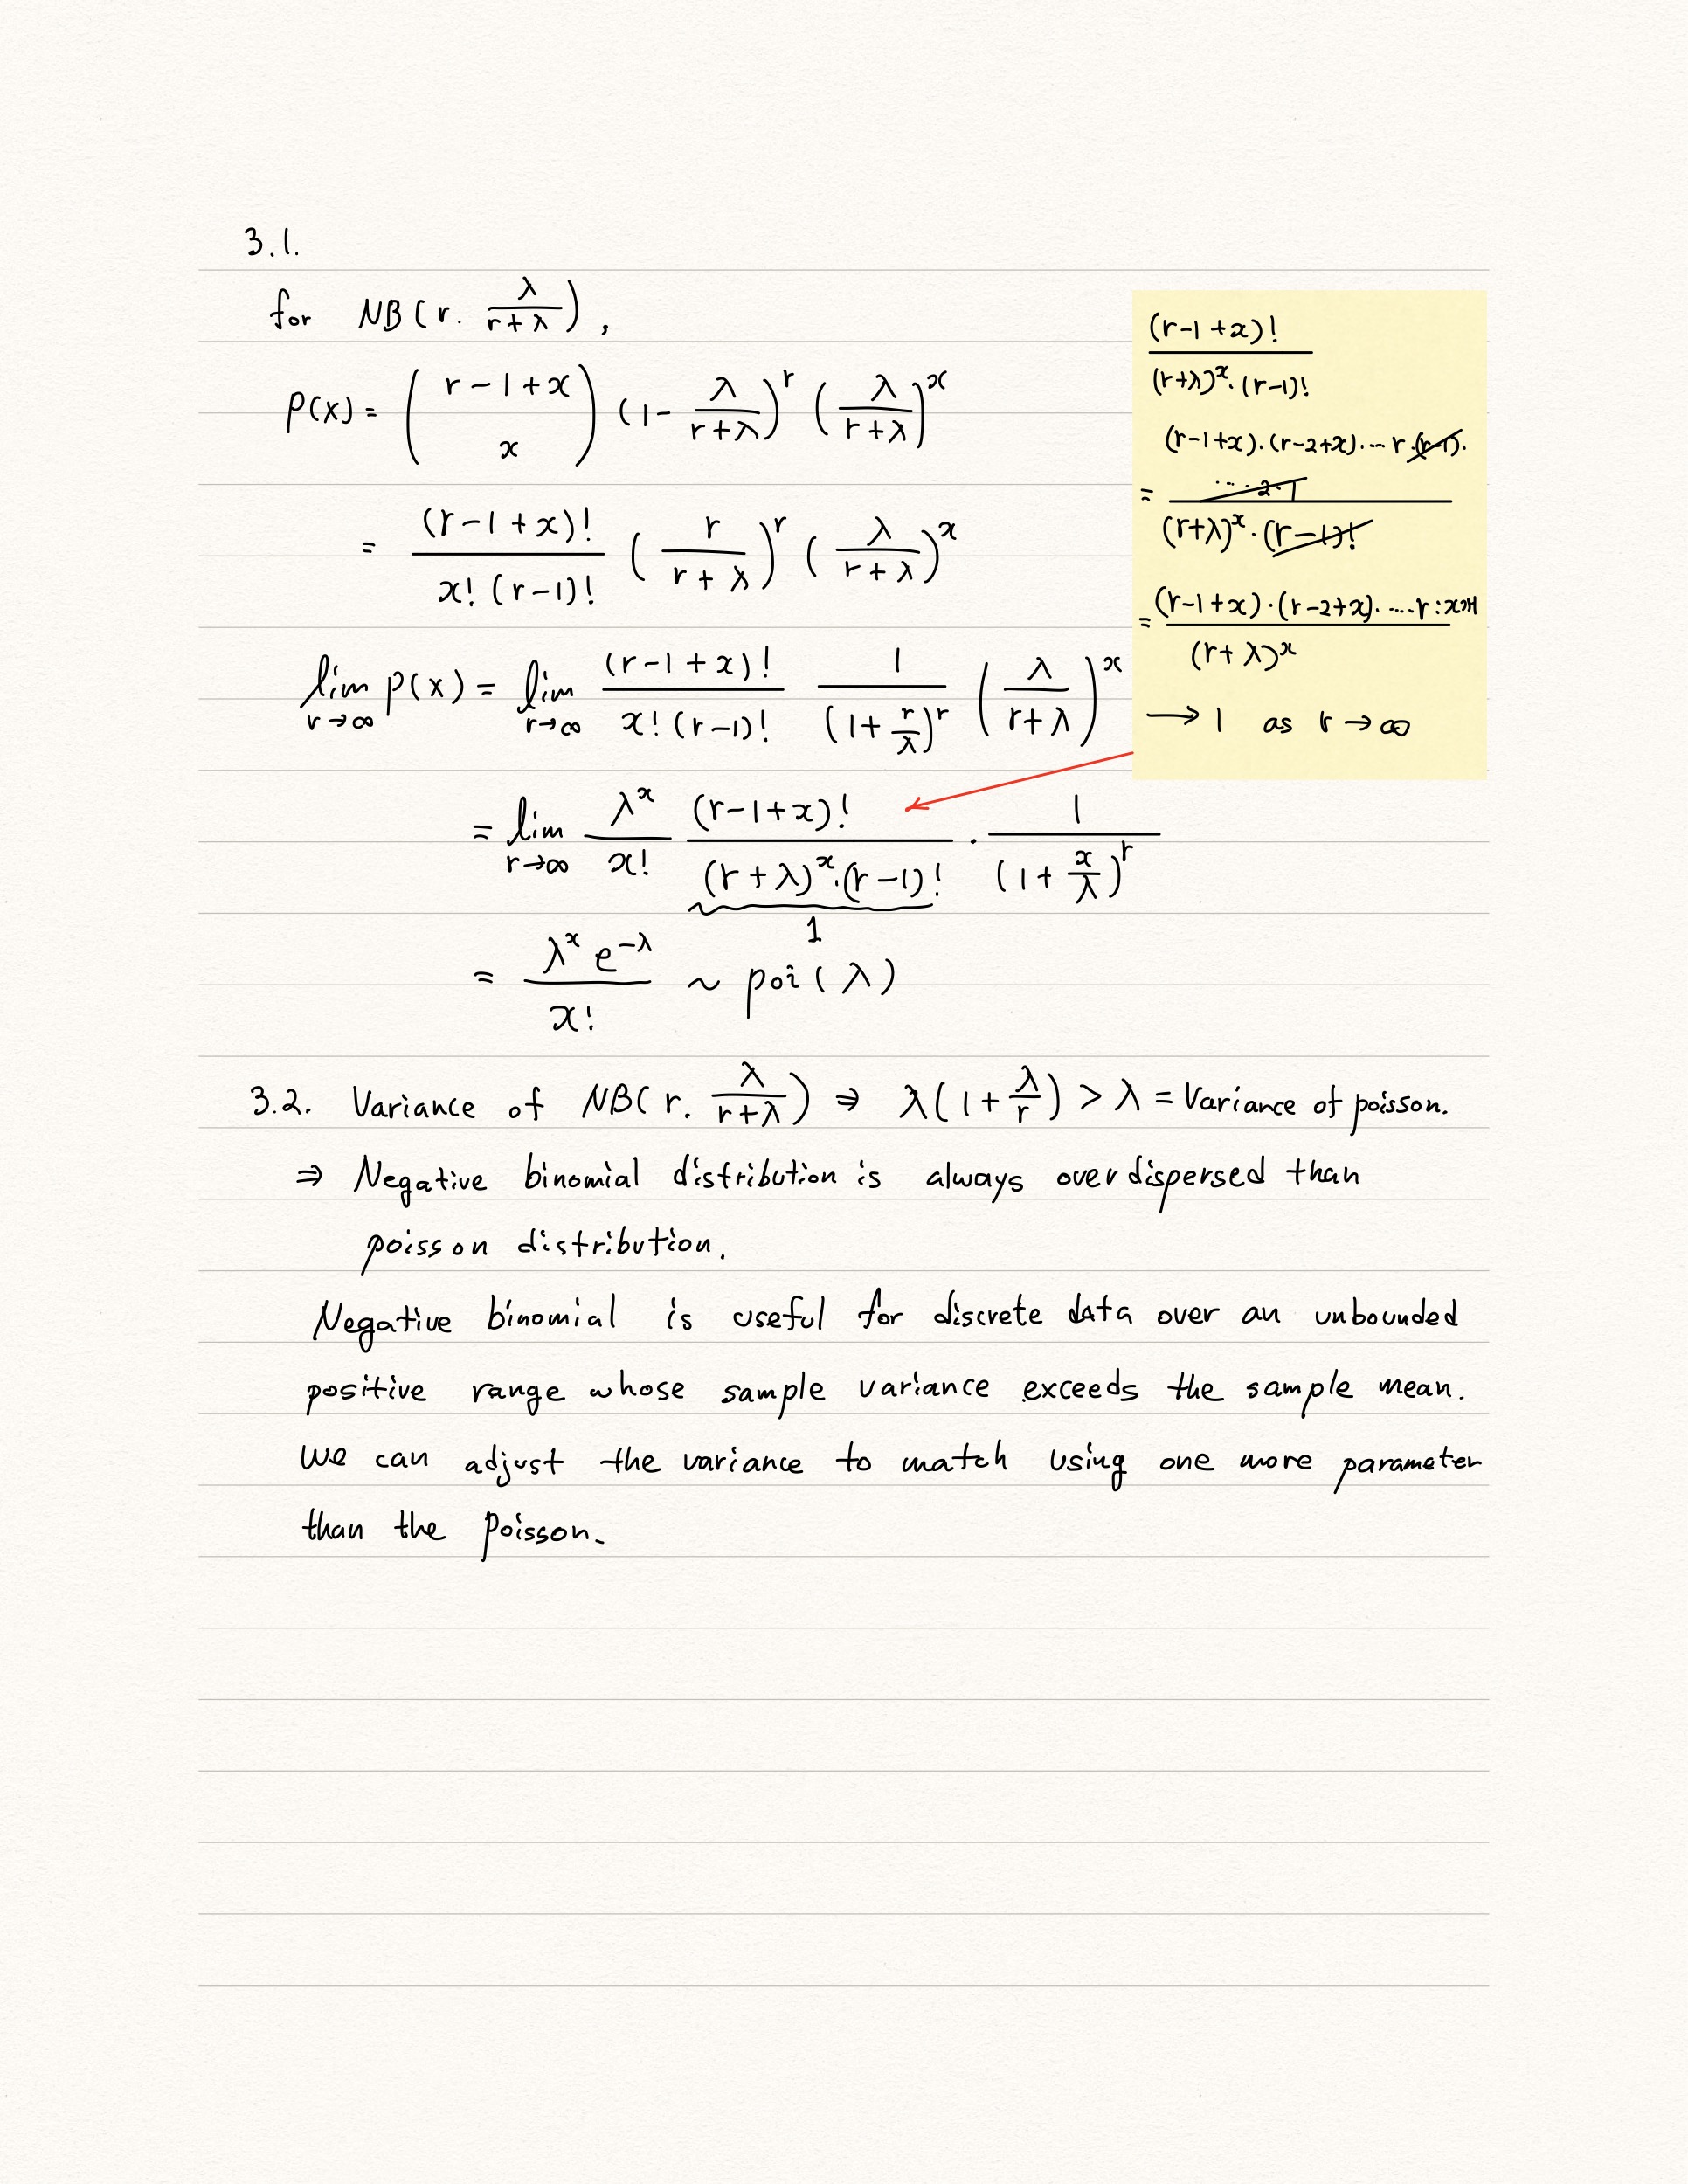 3.1.
for NB(r. λ/(r+λ)),
P(x) = (r-1+x x) (1- λ/(r+λ))^r (λ/(r+λ))^x
= (r-1+x)!/(x!(r-1)!) (r/(r+λ))^r (λ/(r+λ))^x
lim r→∞ P(x) = lim r→∞ (r-1+x)!/(x!(r-1)!) 1/(1+ r/λ)^r (λ/(r+λ))^x
= lim r→∞ λ^x/x! (r-1+x)!/((r+λ)^x·(r-1)!) · 1/(1+ x/λ)^r
1
= λ^x e^-λ/x! ~ poi(λ)
(r-1+x)!/((r+λ)^x·(r-1)!)
= (r-1+x)·(r-2+x)·...r·(r-1)·...·2·1/((r+λ)^x·(r-1)!)
= (r-1+x)·(r-2+x)·....r/(r+λ)^x
→ 1 as r→∞
3.2. Variance of NB(r. λ/(r+λ)) ⇒ λ(1+ λ/r) > λ = Variance of poisson.
⇒ Negative binomial distribution is always overdispersed than
poisson distribution.
Negative binomial is useful for discrete data over an unbounded
positive range whose sample variance exceeds the sample mean.
We can adjust the variance to match using one more parameter
than the Poisson.